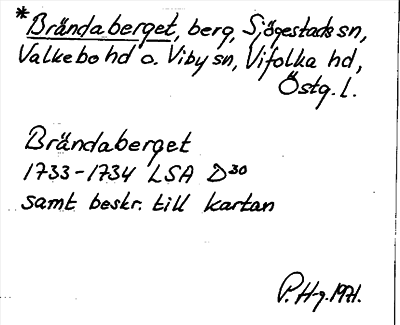 *Brändaberget, berg, Sjögestads sn,
Valkebo hd o. Viby sn, Vifolka hd,
Östg. l.
Brändaberget
1733-1734 LSA D30
samt beskr. till kartan
P. Hg. 1971.